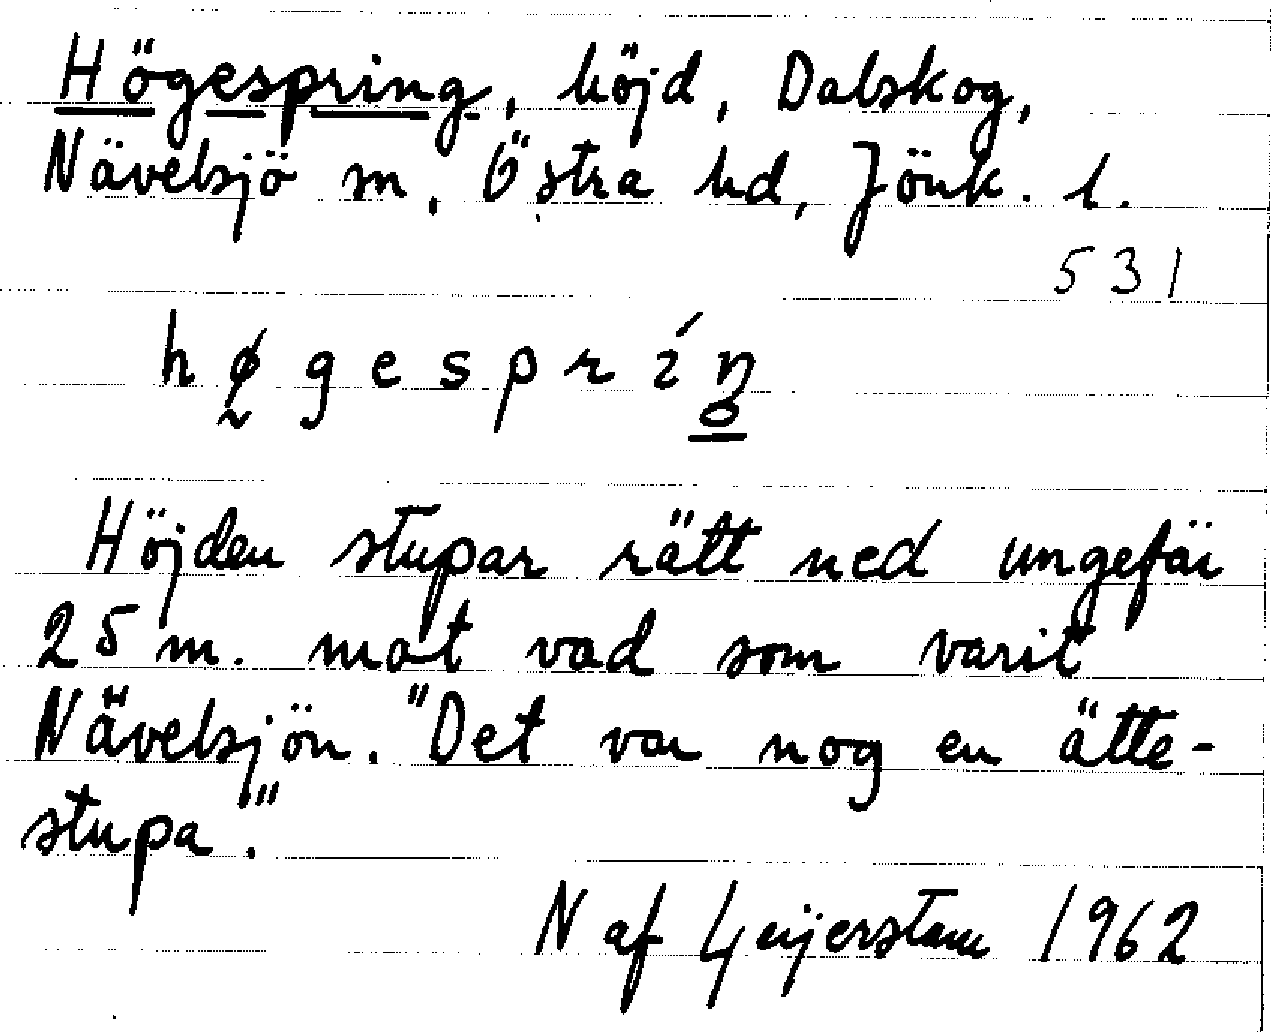 Högespring, höjd, Dalskog,
Nävelsjö sn, Östra hd, Jönk. l.
531
hø̰gespríŋ̥
Höjden stupar rätt ned ungefär
25 m. mot vad som varit
Nävelsjön. "Det var nog en ätte-
stupa."
N af Geijerstam 1962